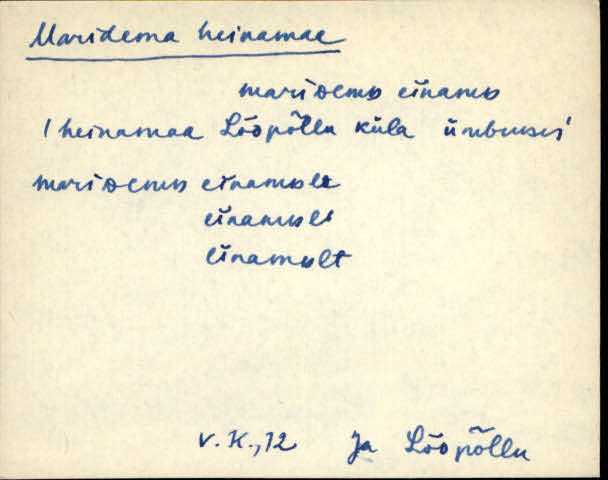 Maridema heinamaa
mariᴅemʋ eìnamʋ
/ heinamaa Lööpõllu küla ümbruses /
mariᴅemʋ eìnamʋle
eìnamʋlˈ
eìnamʋlt
V. K., 72 Ja Lööpõllu